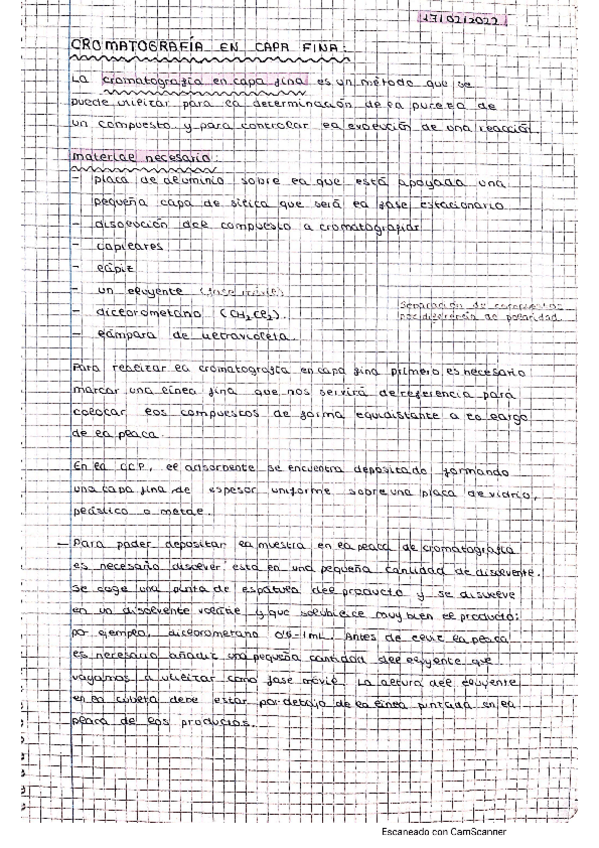 17/02/2022
CROMATOGRAFÍA EN CAPA FINA:
La cromatografía en capa fina es un método que se
puede utilizar para la determinación de la pureza de
un compuesto y para controlar la evolución de una reacción.
material necesario:
- placa de aluminio sobre la que está apoyada una
pequeña capa de sílica que será la fase estacionaria
- disolución del compuesto a cromatografiar
- capilares
- lápiz
- un eluyente (fase móvil)
- diclorometano (CH2Cl2).
- lámpara de ultravioleta.
Separación de
por diferencia de polaridad
Para realizar la cromatografía en capa fina primero es necesario
marcar una línea fina que nos servirá de referencia para
colocar los compuestos de forma equidistante a lo largo
de la placa.
En la CCF, el adsorbente se encuentra depositado formando
una capa fina de espesor uniforme sobre una placa de vidrio,
plástico o metal.
- Para poder depositar la muestra en la placa de cromatografía
es necesario disolver esta en una pequeña cantidad de disolvente.
Se coge una punta de espátula del producto y se disuelve
en un disolvente volátil y que solubilice muy bien el producto:
por ejemplo, diclorometano 0'5-1mL. Antes de eluir la placa
es necesario añadir una pequeña cantidad del eluyente que
vayamos a utilizar como fase móvil. La altura del eluyente
en la cubeta debe estar por debajo de la línea pintada en la
placa de los productos.
Escaneado con CamScanner